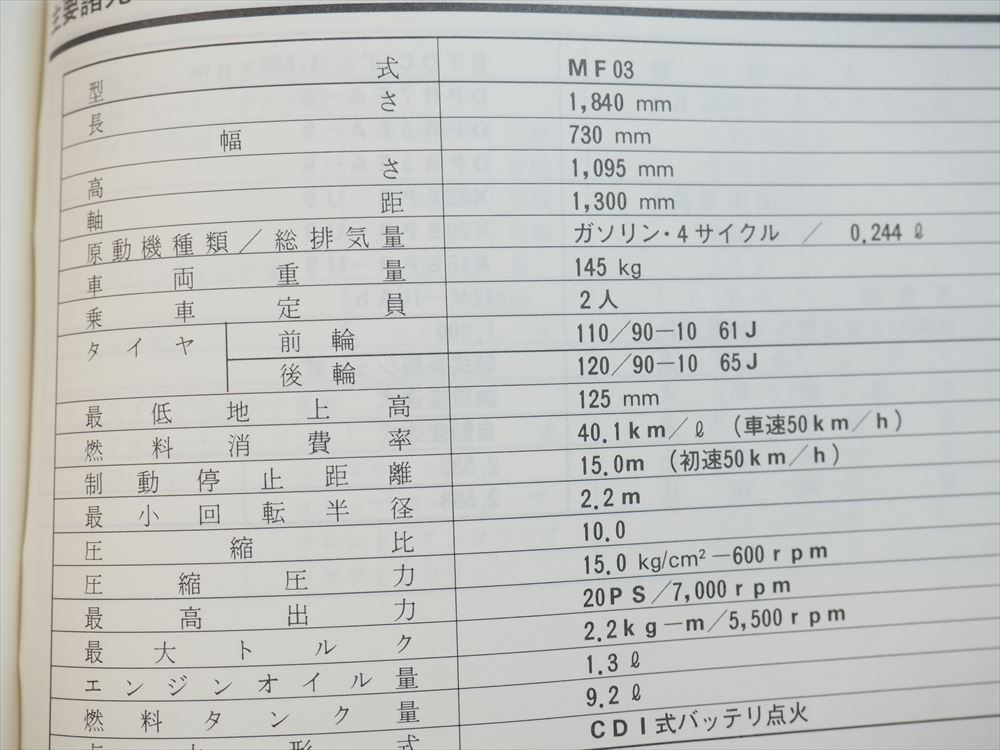 主要諸元
型式 MF03
長さ 1,840 mm
幅 730 mm
高さ 1,095 mm
軸距 1,300 mm
原動機種類／総排気量 ガソリン・4サイクル ／ 0.244 ℓ
車両重量 145 kg
乗車定員 2人
タイヤ 前輪 110／90－10 61J
後輪 120／90－10 65J
最低地上高 125 mm
燃料消費率 40.1km／ℓ （車速50km／h）
制動停止距離 15.0m （初速50km／h）
最小回転半径 2.2m
圧縮比 10.0
圧縮圧力 15.0 kg/cm²－600rpm
最高出力 20PS／7,000rpm
最大トルク 2.2kg－m／5,500rpm
エンジンオイル量 1.3 ℓ
燃料タンク量 9.2 ℓ
点火形式 CDI式バッテリ点火